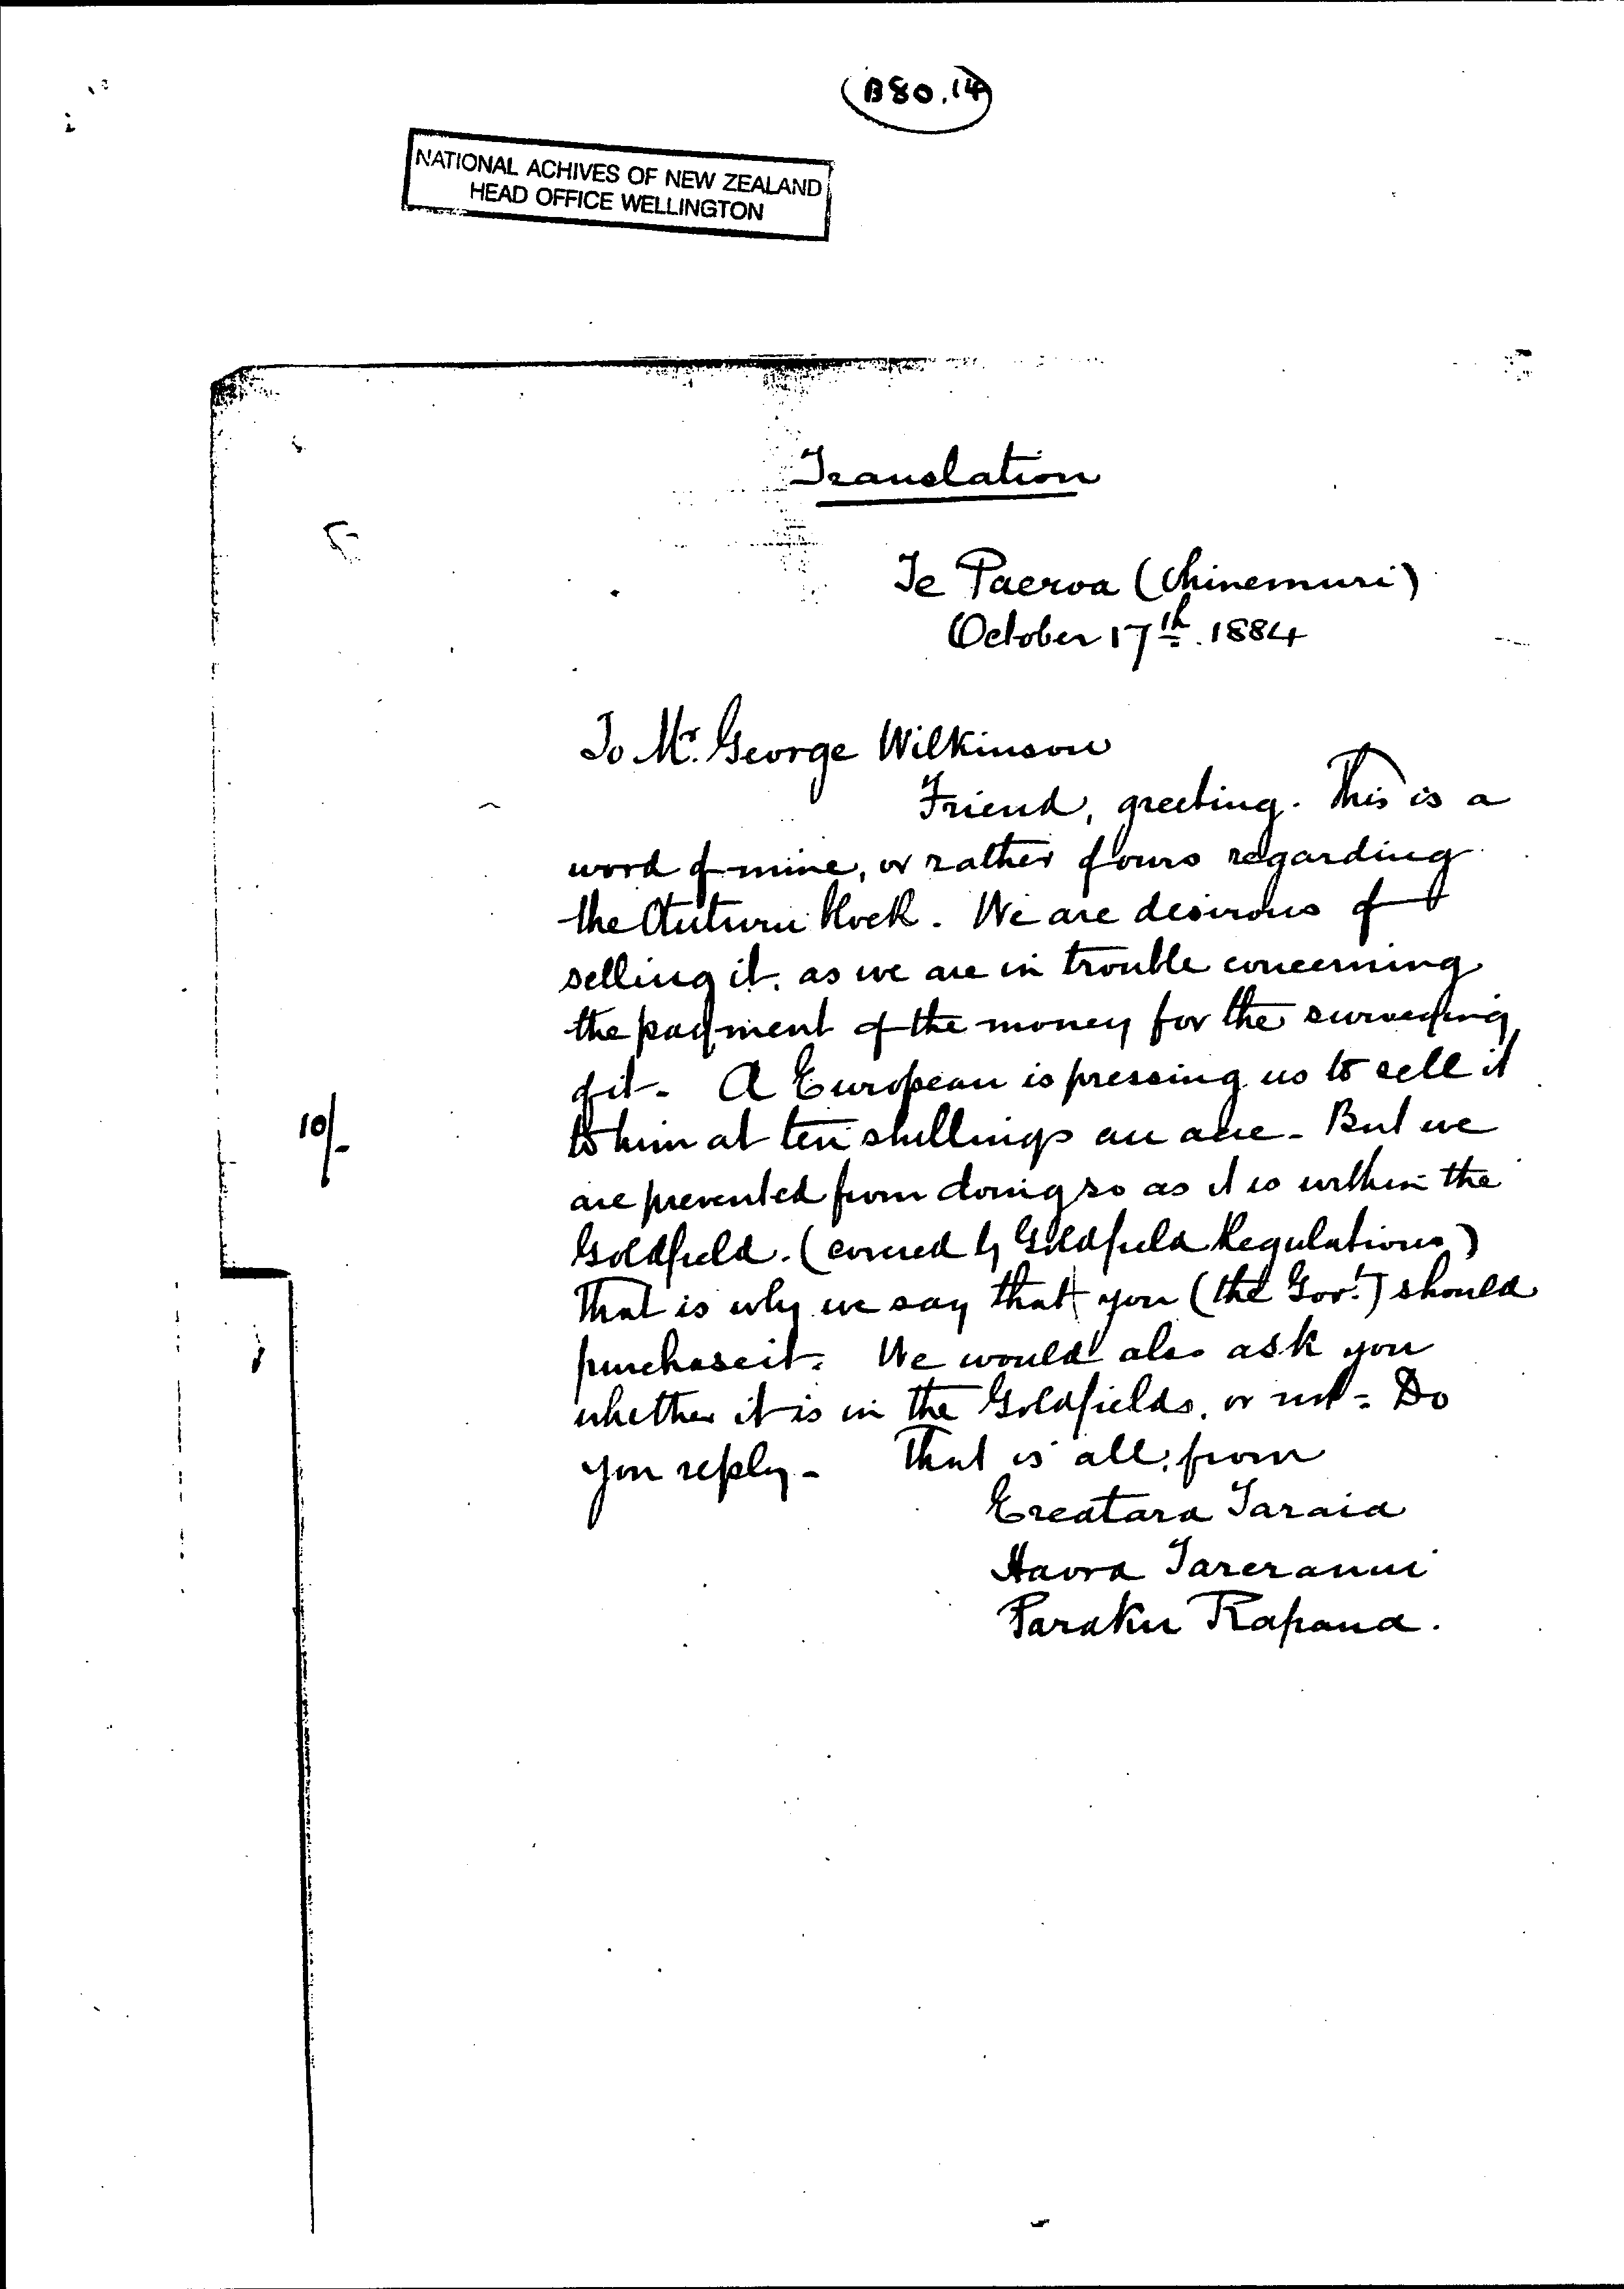 B80.14
NATIONAL ACHIVES OF NEW ZEALAND
HEAD OFFICE WELLINGTON
Translation
Te Paeroa (Ohinemuri)
October 17th. 1884
To Mr. George Wilkinson
Friend, greeting. This is a
word of mine, or rather of ours regarding
the Otuturu block. We are desirous of
selling it, as we are in trouble concerning
the payment of the money for the surveying
of it - A European is pressing us to sell it
10/-
to him at ten shillings an acre - But we
are prevented from doing so as it is within the
Goldfield. (covered by Goldfield Regulations)
That is why we say that you (the Govt.) should
purchase it. We would also ask you
whether it is in the Goldfields, or not = Do
you reply - That is all, from
Ereatara Taraia
Haora Tareranui
Paraku Rapana.